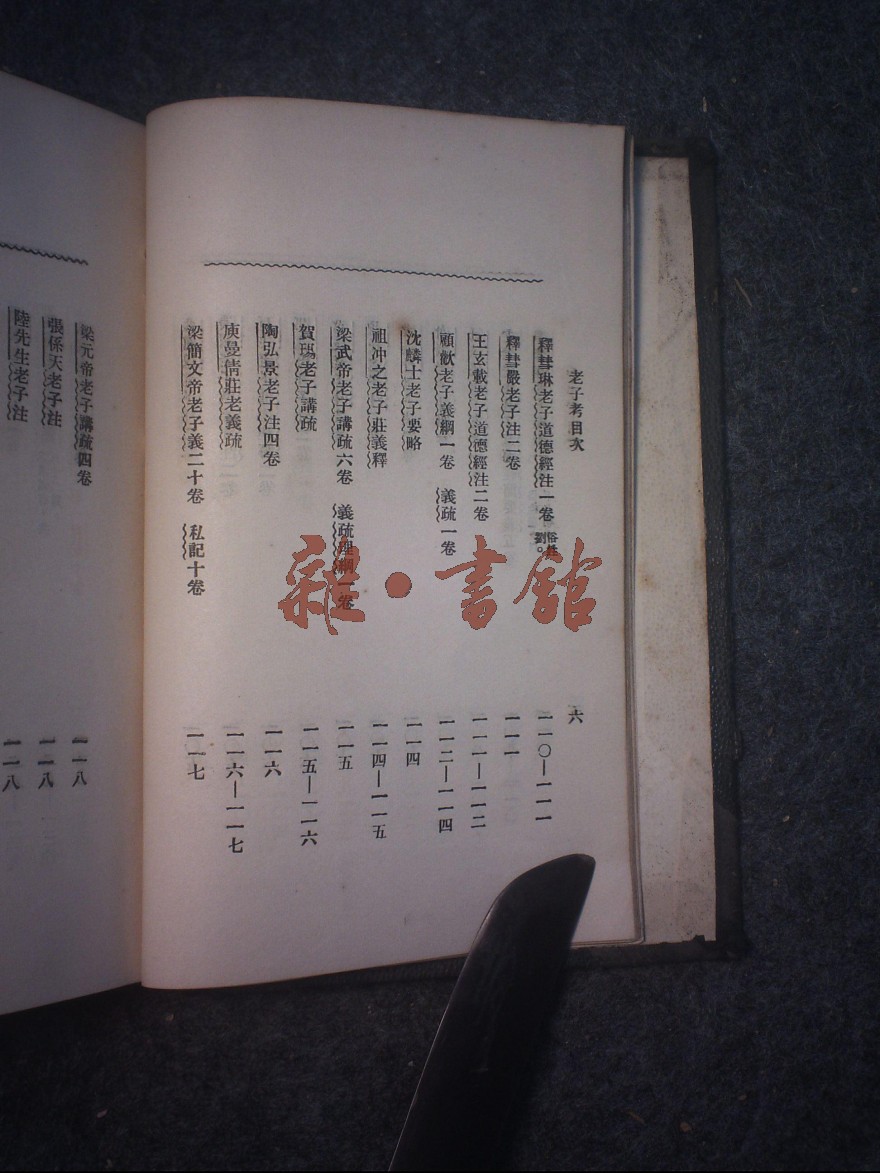 老子考目次
六
釋彗琳老子道德經注一卷 俗姓劉。 一一〇—一一一
釋彗嚴老子注二卷 一一一
王玄載老子道德經注二卷 一一一—一一二
顧歡老子義綱一卷 義疏一卷 一一二—一一四
沈麟士老子要略 一一四
祖冲之老子莊義釋 一一四—一一五
梁武帝老子講疏六卷 義疏理綱一卷 一一五
賀瑒老子講疏 一一五—一一六
陶弘景老子注四卷 一一六
庾曼倩莊老義疏 一一六—一一七
梁簡文帝老子義二十卷 私記十卷 一一七
梁元帝老子講疏四卷 一一八
張係天老子注 一一八
陸先生老子注 一一八
雜·書館